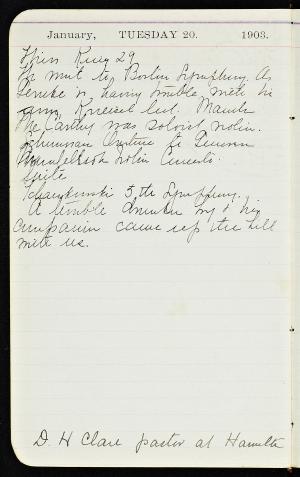 January, TUESDAY 20. 1903.
29
We went to Boston Symphony. As
is having trouble with his
arm, Kneisel led. Maude
Mc Carthy was soloist violin.
Schumann Overture to Genoveva
Mendelssohn Violin Concerto.
Suite
Tchaikowski 5th Symphony.
A terrible drunken &
companion came up the hill
with us.
D. H Clare pastor at Hamilton